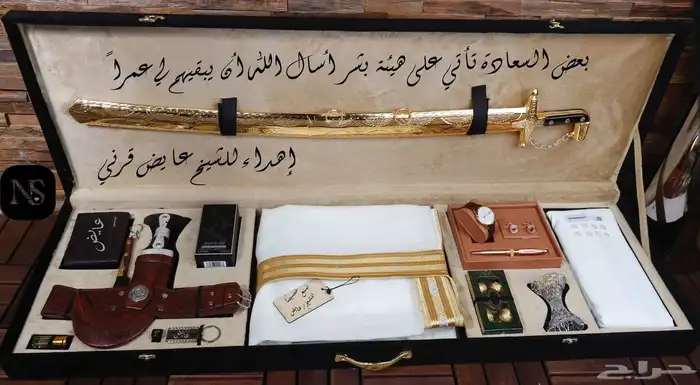 بعض السعادة تأتي على هيئة بشر أسال الله أن يبقيهم لي عمراً
إهداء للشيخ عايض قرني
NS
عايض
حراج